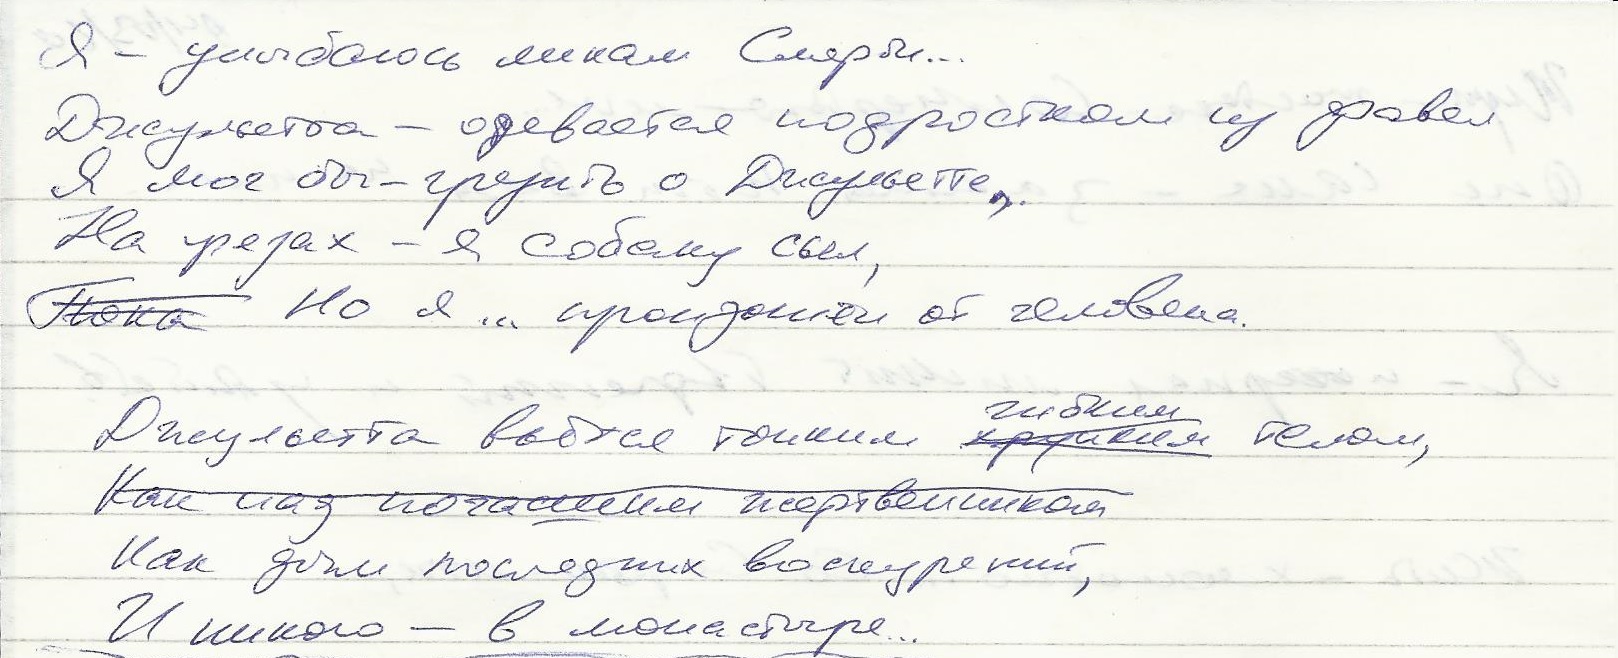 Я – улыбаюсь ликам Смерти...
Джульетта – одевается подростком из
Я мог бы – грезить о Джульетте...
На грезах – я собаку съел,
Пока Но я ... произошёл от человека.
гибким
Джульетта вьётся тонким хрупким телом,
Как над погасшим жертвенником
Как дым последних воскурений,
И никого – в монастыре...